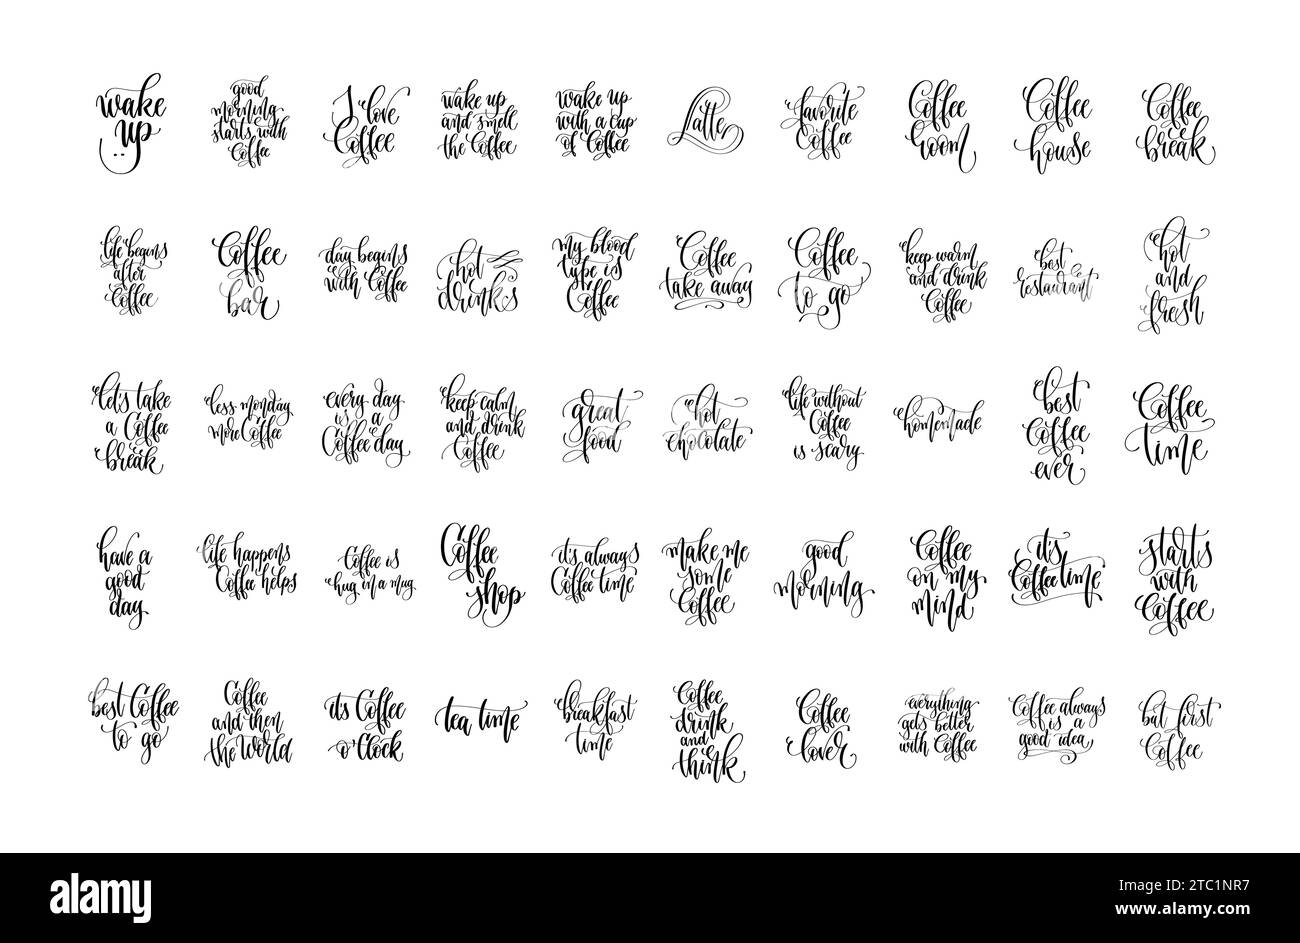 wake
up
good
morning
starts with
Coffee
I love
Coffee
wake up
and smell
the Coffee
wake up
with a cup
of Coffee
Latte
favorite
Coffee
Coffee
room
Coffee
house
Coffee
break
life begins
after
Coffee
Coffee
bar
day begins
with Coffee
hot
drinks
my blood
type is
Coffee
Coffee
take away
Coffee
to go
keep warm
and drink
Coffee
best
restaurant
hot
and
fresh
let's take
a Coffee
break
less monday
more Coffee
every day
is a
Coffee day
keep calm
and drink
Coffee
great
food
hot
chocolate
life without
Coffee
is scary
homemade
best
Coffee
ever
Coffee
time
have a
good
day
life happens
Coffee helps
Coffee is
hug in a mug
Coffee
shop
it's always
Coffee time
make me
some
Coffee
good
morning
Coffee
on my
mind
it's
Coffee time
starts
with
Coffee
best Coffee
to go
Coffee
and then
the world
it's Coffee
o'Clock
tea time
breakfast
time
Coffee
drink
and
think
Coffee
lover
everything
gets better
with Coffee
Coffee always
is a
good idea
but first
Coffee
alamy
Image ID: 2TC1NR7
www.alamy.com